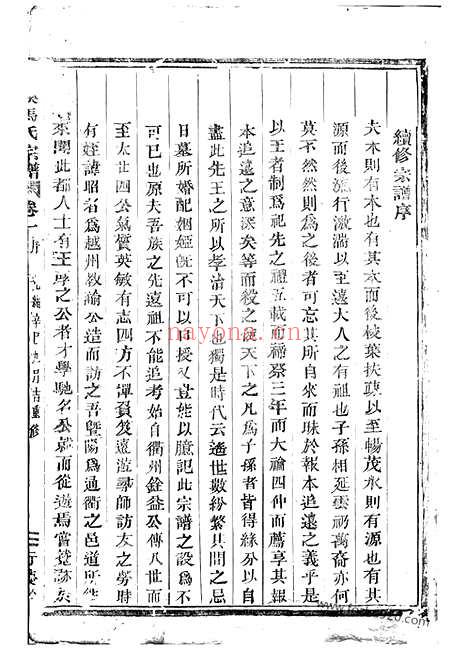 續修宗譜序
夫木則有木也有其本而後枝葉扶踈以至暢茂水則有源也有其
源而後流行激湍以至遠大人之有祖也子孫相延雲礽萬裔亦何
莫不然然則為之後者可忘其所自來而昧於報本追遠之義乎是
以王者制為祀先之禮五載而禘祭三年而大祫四仲而薦享其報
本追遠之意深矣等而殺之使天下之凡為子孫者皆得緣分以自
盡此先王之所以孝治天下也獨是時代云遙世數紛繁其間之忌
日墓所婚配姻婭既不可以面授又豈能以臆記此宗譜之設為不
可已也原夫吾族之先遠祖不能追考始自衢州銓益公傳八世而
至太世四公氣質英敏有志四方不憚負笈遠遊尋師訪友之勞時
有姪諱昭者為越州教諭公造而訪之吾暨陽為通衢之邑道所
來聞此都人士有王學之公者才學馳名公就而從遊焉嘗
馬氏宗譜
卷一 序
光緒辛巳九月吉重修
nayona.cn